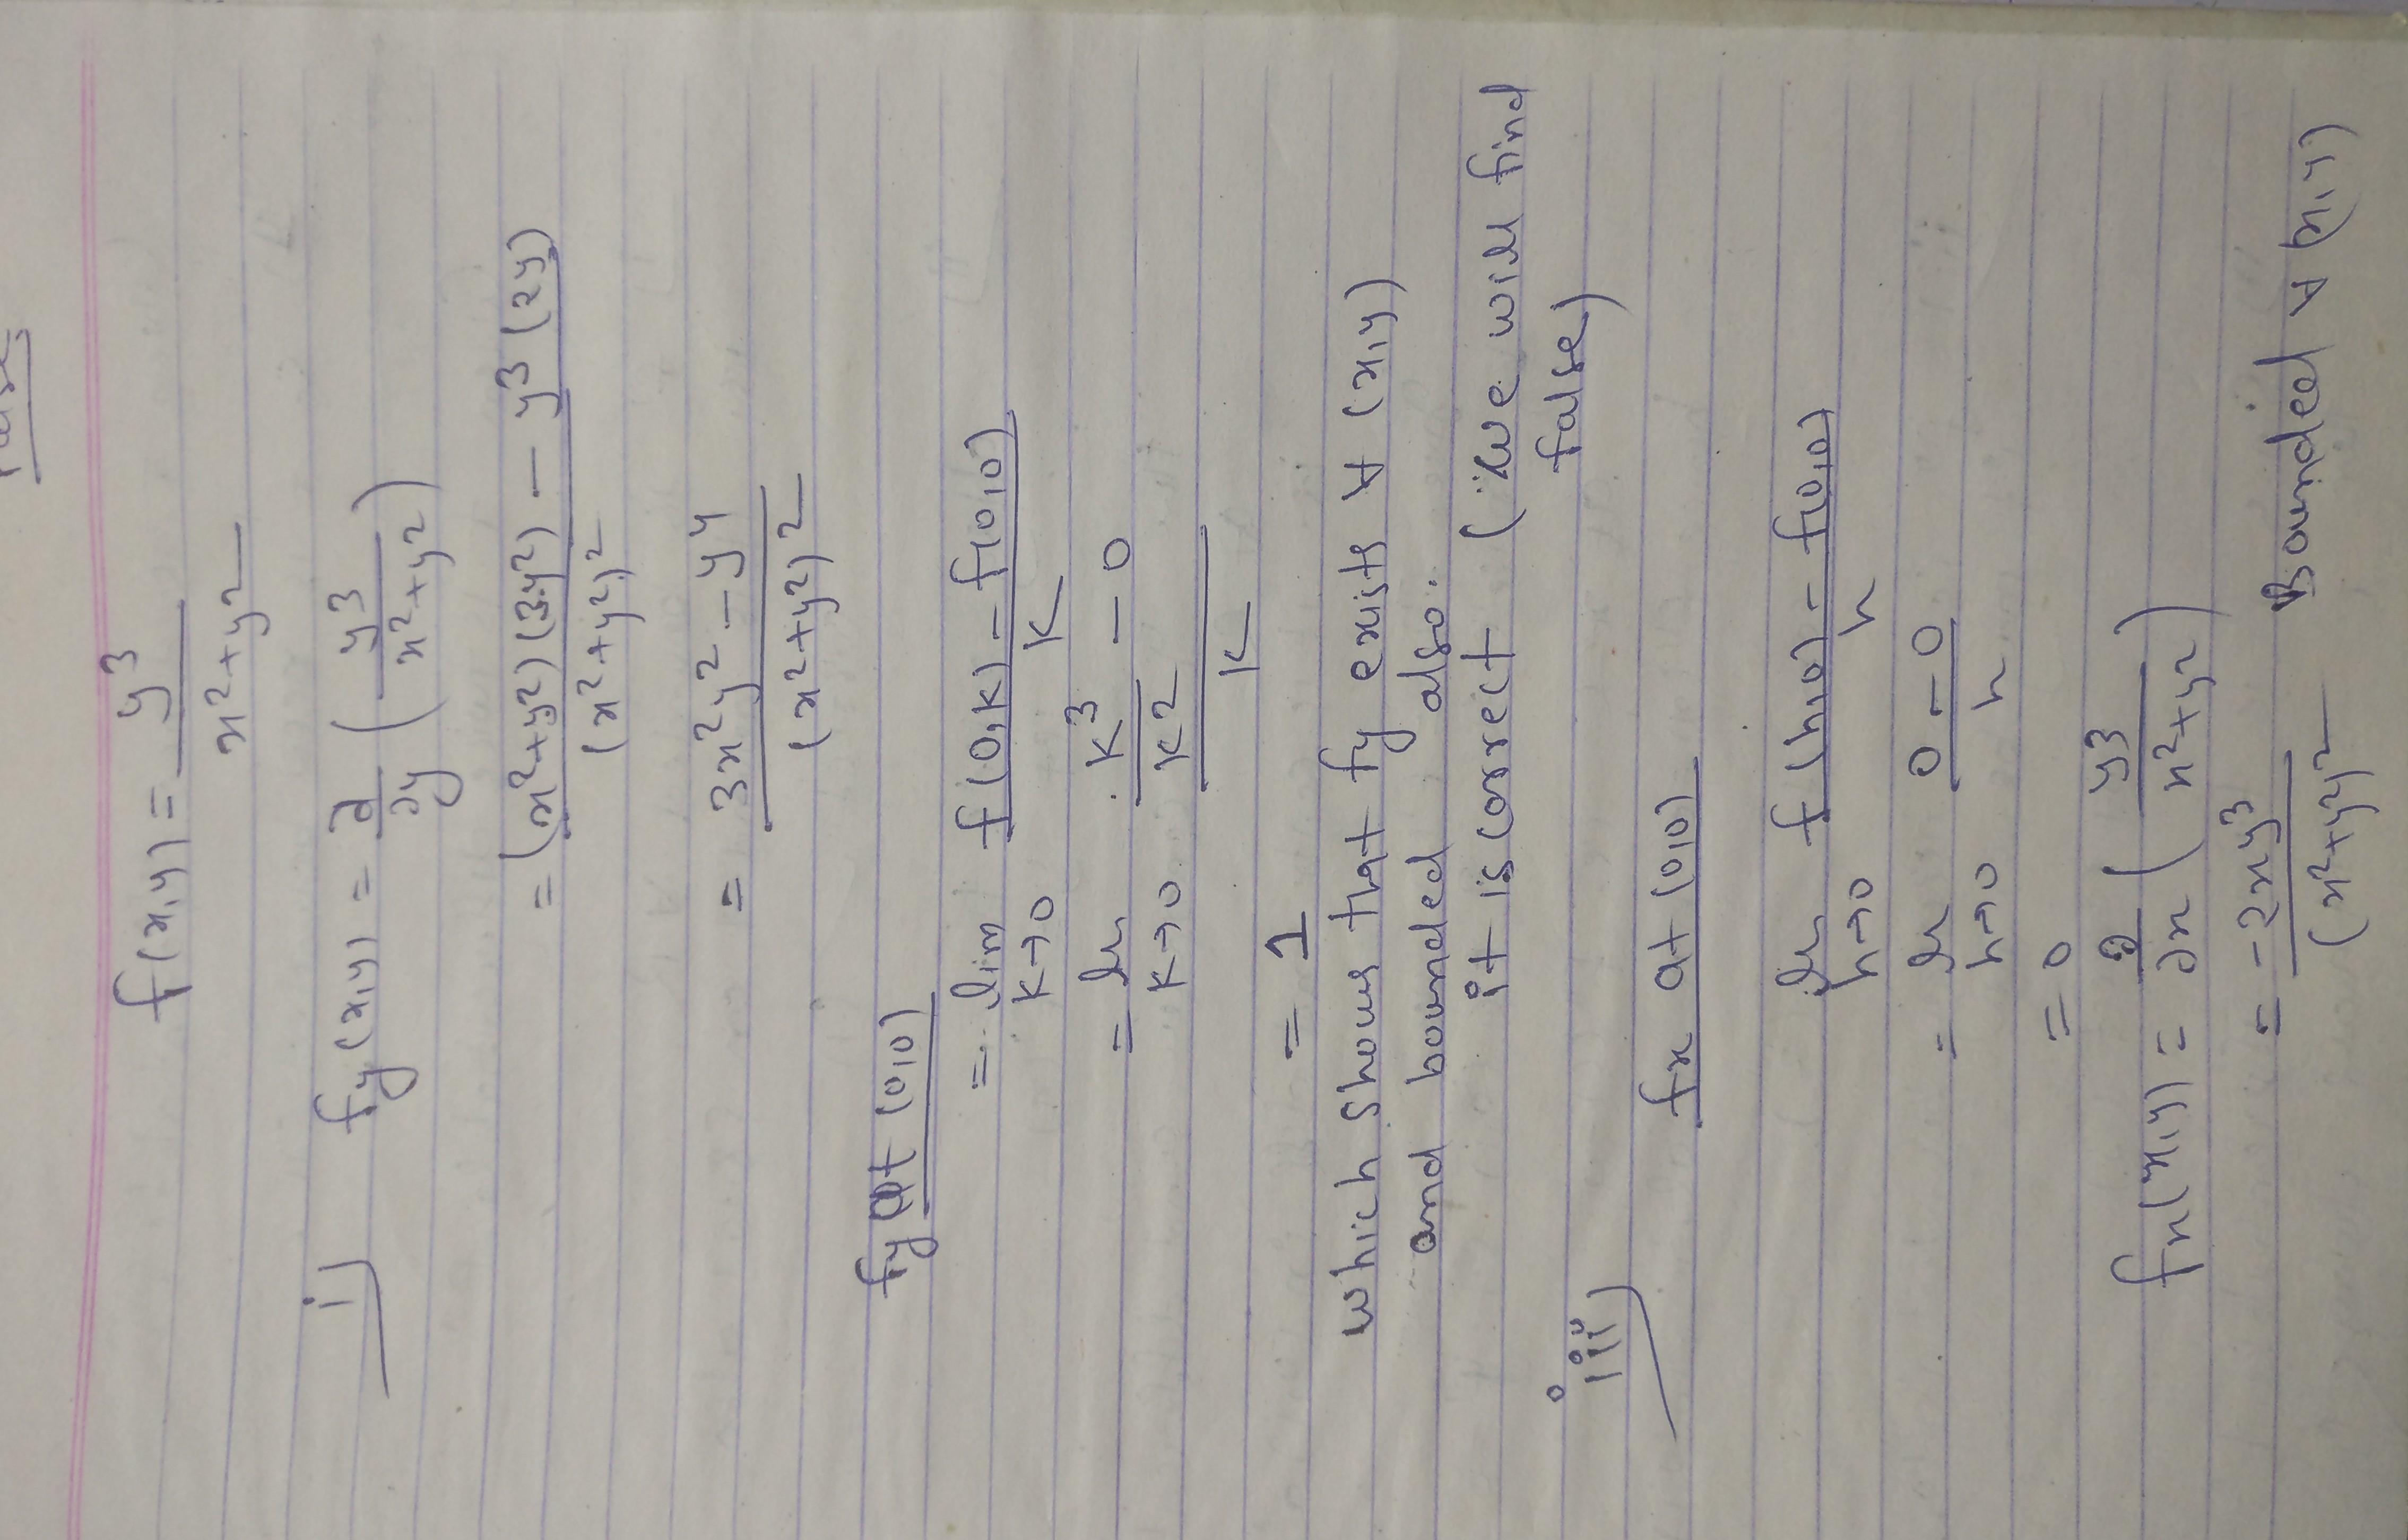 f(x,y) = y³ / x²+y²
i) fy(x,y) = ∂/∂y ( y³ / x²+y² )
= (x²+y²)(3y²) − y³(2y) / (x²+y²)²
= 3x²y² − y⁴ / (x²+y²)²
fy at (0,0)
= lim k→0 f(0,k) − f(0,0) / k
= lim k→0 k³/k² − 0 / k
= 1
which shows that fy exists ∀ (x,y)
and bounded also.
it is correct (∵ we will find
false)
iii) fx at (0,0)
lim h→0 f(h,0) − f(0,0) / h
= lim h→0 0 − 0 / h
= 0
fx(x,y) = ∂/∂x ( y³ / x²+y² )
= −2xy³ / (x²+y²)² Bounded ∀ (x,y)